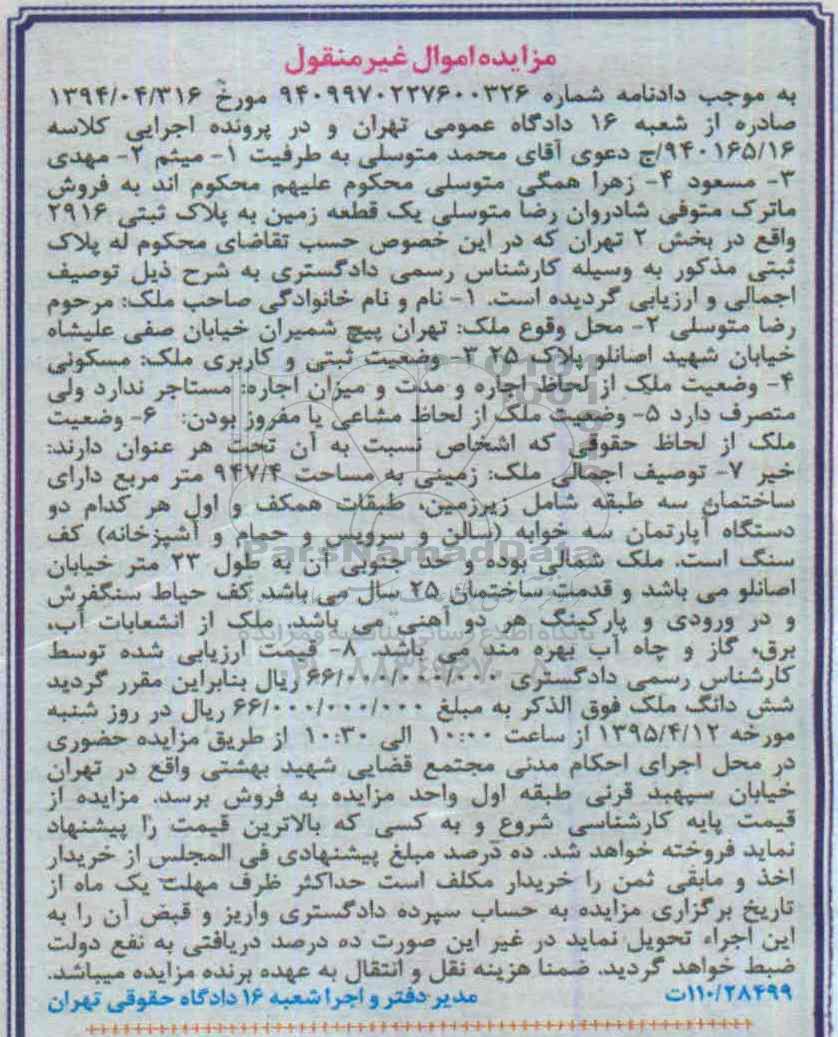 مزایده اموال غیرمنقول
به موجب دادنامه شماره ۹۴۰۹۹۷۰۲۲۷۶۰۰۳۲۶ مورخ ۱۳۹۴/۰۴/۳۱۶
صادره از شعبه ۱۶ دادگاه عمومی تهران و در پرونده اجرایی کلاسه
۹۴۰۱۶۵/۱۶/ج دعوی آقای محمد متوسلی به طرفیت ۱- میثم ۲- مهدی
۳- مسعود ۴- زهرا همگی متوسلی محکوم علیهم محکوم اند به فروش
ماترک متوفی شادروان رضا متوسلی یک قطعه زمین به پلاک ثبتی ۲۹۱۶
واقع در بخش ۲ تهران که در این خصوص حسب تقاضای محکوم له پلاک
ثبتی مذکور به وسیله کارشناس رسمی دادگستری به شرح ذیل توصیف
اجمالی و ارزیابی گردیده است. ۱- نام و نام خانوادگی صاحب ملک: مرحوم
رضا متوسلی ۲- محل وقوع ملک: تهران پیچ شمیران خیابان صفی علیشاه
خیابان شهید اصانلو پلاک ۲۵ ۳- وضعیت ثبتی و کاربری ملک: مسکونی
۴- وضعیت ملک از لحاظ اجاره و مدت و میزان اجاره: مستاجر ندارد ولی
متصرف دارد ۵- وضعیت ملک از لحاظ مشاعی یا مفروز بودن: ۶- وضعیت
ملک از لحاظ حقوقی که اشخاص نسبت به آن تحت هر عنوان دارند:
خیر ۷- توصیف اجمالی ملک: زمینی به مساحت ۹۴۷/۴ متر مربع دارای
ساختمان سه طبقه شامل زیرزمین، طبقات همکف و اول هر کدام دو
دستگاه آپارتمان سه خوابه (سالن و سرویس و حمام و آشپزخانه) کف
سنگ است. ملک شمالی بوده و حد جنوبی آن به طول ۲۳ متر خیابان
اصانلو می باشد و قدمت ساختمان ۲۵ سال می باشد کف حیاط سنگفرش
و در ورودی و پارکینگ هر دو آهنی می باشد. ملک از انشعابات آب،
برق، گاز و چاه آب بهره مند می باشد. ۸- قیمت ارزیابی شده توسط
کارشناس رسمی دادگستری ۶۶/۰۰۰/۰۰۰/۰۰۰ ریال بنابراین مقرر گردید
شش دانگ ملک فوق الذکر به مبلغ ۶۶/۰۰۰/۰۰۰/۰۰۰ ریال در روز شنبه
مورخه ۱۳۹۵/۴/۱۲ از ساعت ۱۰:۰۰ الی ۱۰:۳۰ از طریق مزایده حضوری
در محل اجرای احکام مدنی مجتمع قضایی شهید بهشتی واقع در تهران
خیابان سپهبد قرنی طبقه اول واحد مزایده به فروش برسد. مزایده از
قیمت پایه کارشناسی شروع و به کسی که بالاترین قیمت را پیشنهاد
نماید فروخته خواهد شد. ده درصد مبلغ پیشنهادی فی المجلس از خریدار
اخذ و مابقی ثمن را خریدار مکلف است حداکثر ظرف مهلت یک ماه از
تاریخ برگزاری مزایده به حساب سپرده دادگستری واریز و قبض آن را به
این اجراء تحویل نماید در غیر این صورت ده درصد دریافتی به نفع دولت
ضبط خواهد گردید. ضمنا هزینه نقل و انتقال به عهده برنده مزایده میباشد.
۱۱۰/۲۸۴۹۹ت مدیر دفتر و اجرا شعبه ۱۶ دادگاه حقوقی تهران
ParsNamadData